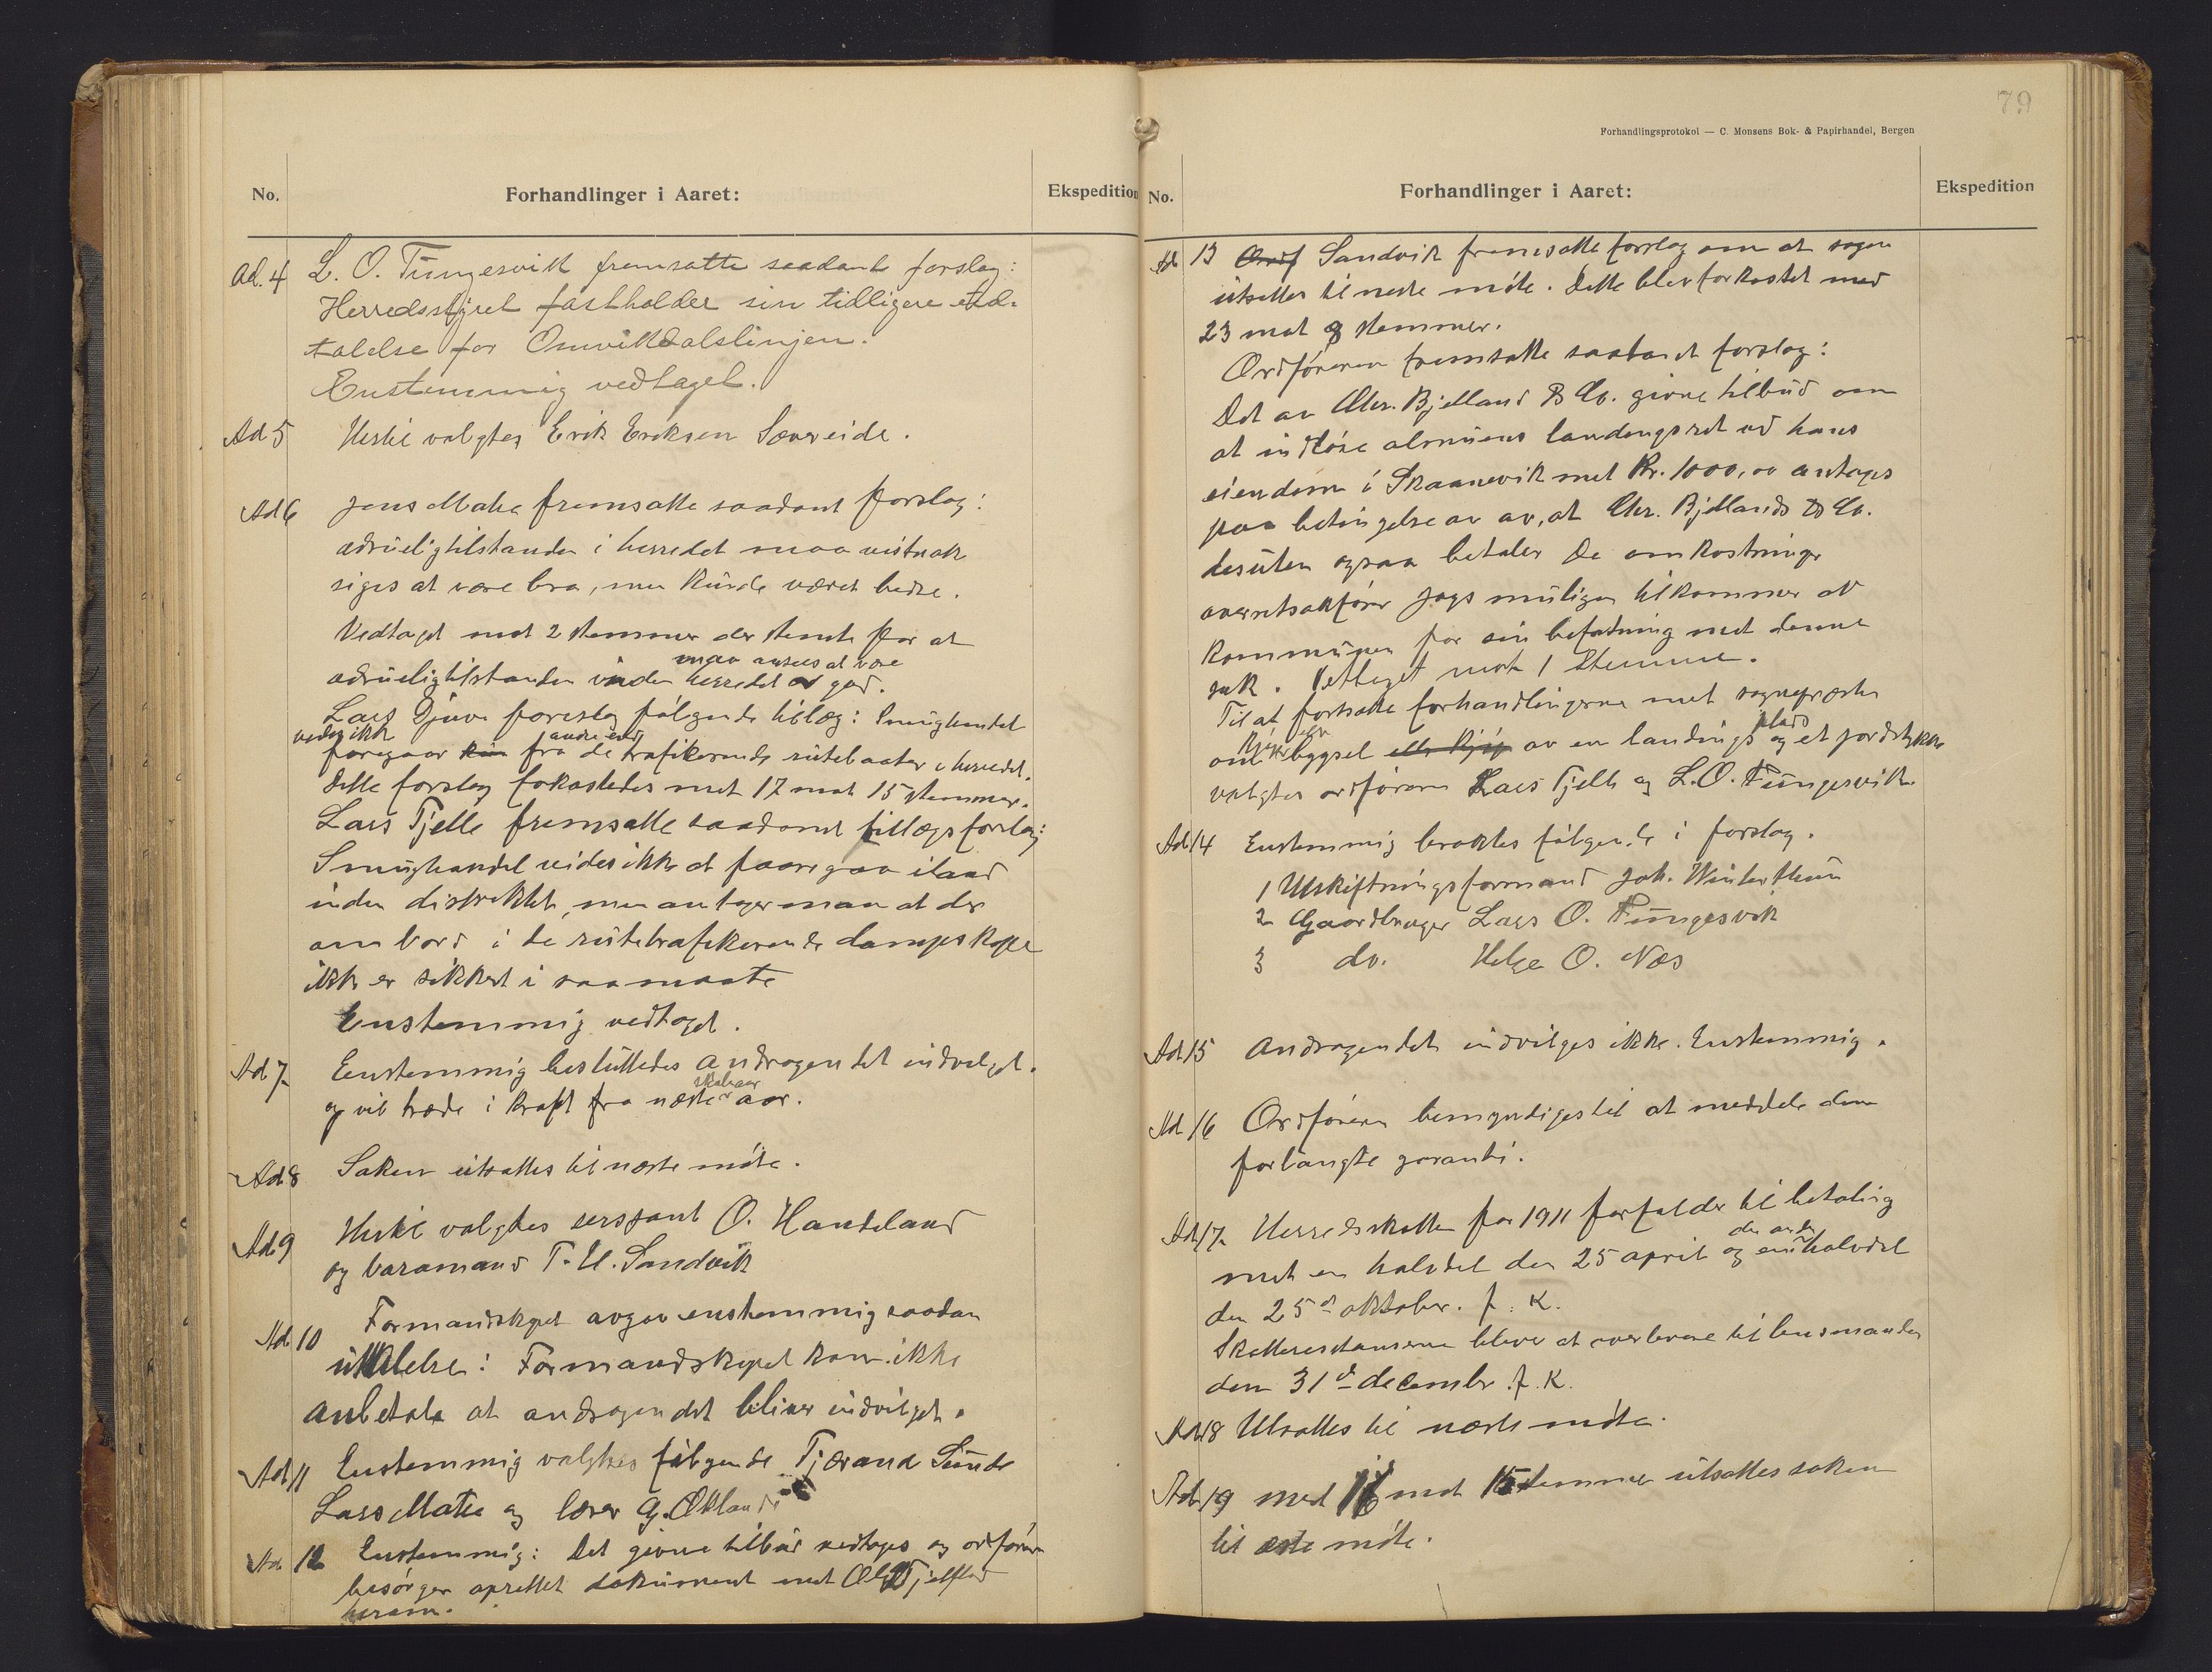 No.
Forhandlinger i Aaret:
Ekspedition
Ad. 4 L. O. Tungesvik fremsatte saadant forslag:
Herredsstyret fastholder sin tidligere ud-
talelse for Omvikdalslinjen.
Enstemmig vedtaget.
Ad 5 Hertil valgtes Erik Eriksen Sævereide.
Ad 6 Jens Matre fremsatte saadant forslag:
ædrueligtilstanden i herredet maa vistnok
siges at være bra, men kunde været bedre.
Vedtaget mot 2 stemmer der stemte for at
maa ansees at være
ædrueligtilstanden inden herredet er god.
Lars Djuve foreslog følgende tillæg: Smughandel
vides ikke andre end
foregaar fra de trafikerende rutebaater i herredet.
Dette forslag forkastedes med 17 mot 15 stemmer.
Lars Tjelle fremsatte saadant tillægsforslag:
Smughandel vides ikke at foregaa iland
inden distriktet, men antager man at der
ombord i de rutetrafikerende dampskibe
ikke er sikkert i saa maate
Enstemmig vedtaget.
Ad 7. Eenstemmig besluttedes andragendet indvilget.
skoleaar
og vil træde i kraft fra næste aar.
Ad 8 Saken utsattes til næste møte.
Ad 9 Hertil valgtes sersjant O. Handeland
og varamand T. H. Sandvik
Ad 10 Formandskapet avgav enstemmig saadan
uttalelse: Formandskapet kan ikke
anbefale at andragendet bliver indvilget.
Ad 11 Enstemmig valgtes følgende Tjærand Sunde
Lars Matre og lærer G. Økland
Ad 12 Enstemmig: Det givne tilbud vedtages og ordføreren
besørger oprettet dokument med Tjelflad
herom.
79
Forhandlingsprotokol — C. Monsens Bok- & Papirhandel, Bergen
No.
Forhandlinger i Aaret:
Ekspedition
Ad 13 Ordf Sandvik fremsatte forslag om at sagen
utsettes til neste møte. Dette blev forkastet med
23 mot 8 stemmer.
Ordføreren fremsatte saadant forslag:
Det av Chr. Bjelland & Co. givne tilbud om
at indløse almuens landingsret ved hans
eiendom i Skaanevik med Kr. 1000,00 antages
paa betingelse av, at Chr. Bjellands & Co.
desuten ogsaa betaler de omkostninger
overretsakfører muligen tilkommer av
kommunen for sin befatning med denne
sak. Vettaget mot 1 stemme.
Til at fortsætte forhandlingerne met sognepræsten
kjøp eller plads
om bygsel eller kjøp av en landings og et jordstykke
valgtes ordføreren Lars Tjelle og L. O. Tungesvik.
Ad 14 Enstemmig bragtes følgende i forslag.
1 Utskiftningsformand Joh. Winterthun
2 Gaardbruger Lars O. Tungesvik
3 do. Helge O. Næs
Ad 15 Andragendet indvilges ikke. Enstemmig.
Ad 16 Ordføreren bemyndiges til at meddele den
forlangte garanti.
Ad 17. Herredsskatten for 1911 forfalder til betaling
den anden
med en halvdel den 25 april og en halvdel
den 25de oktober. f. K.
Skatterestanserne bliver at overlevere til lensmanden
den 31te december. f. K.
Ad 18 Utsattes til næste møte.
Ad 19 med 16 mot 15 stemmer utsattes saken
til møte.